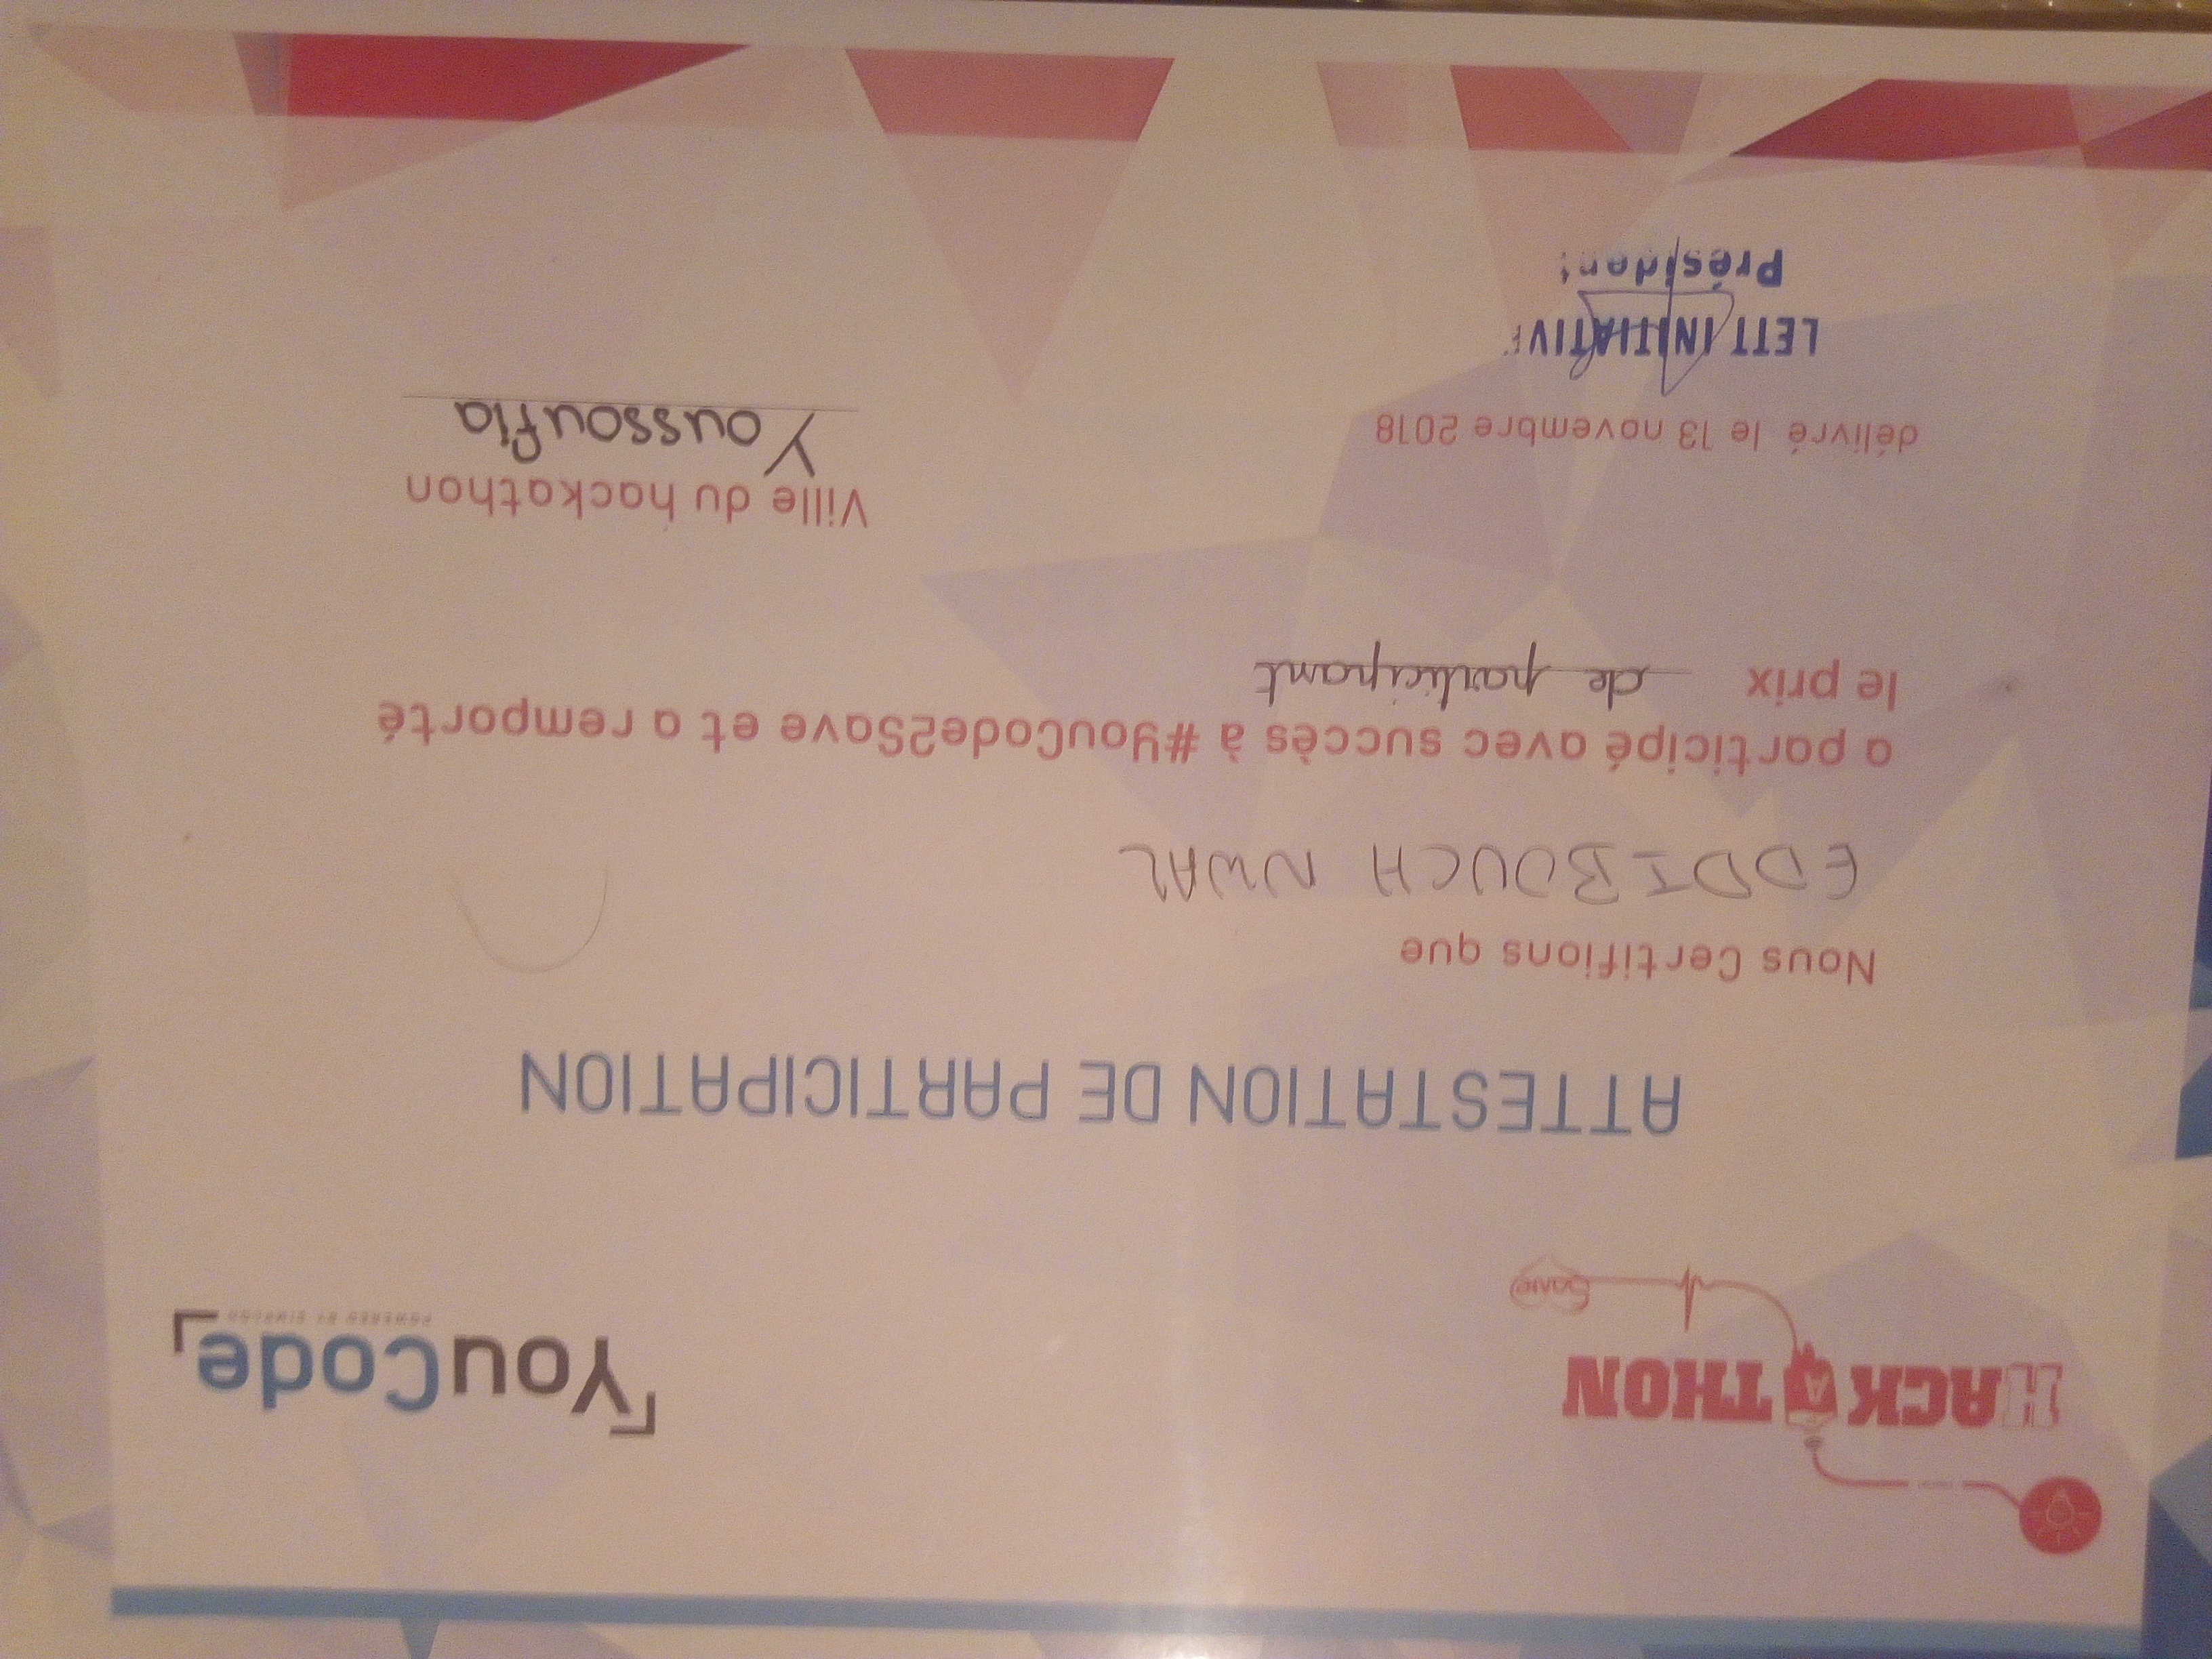 HACKATHON
Santé
YouCode
POWERED BY SIMPLON
ATTESTATION DE PARTICIPATION
Nous Certifions que
EDDIBOUCH NWAL
a participé avec succès à #YouCode2Save et a remporté
le prix de participant
Ville du hackathon
Youssoufia
délivré le 13 novembre 2018
LETT INITIATIVE
Président